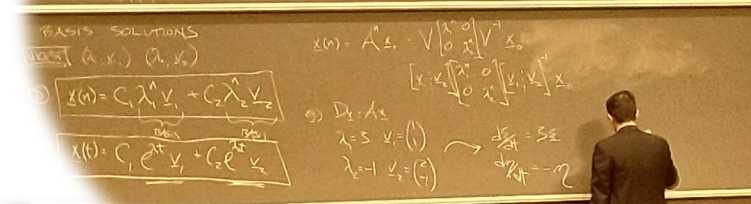 BASIS SOLUTIONS
(λ₁, v₁) (λ₂, v₂)
x(n) = C₁ λ₁ⁿ v₁ + C₂ λ₂ⁿ v₂
BASIS BASIS
x(t) = C₁ e^λt v₁ + C₂ e^λt v₂
x(n) = Aⁿ x₀ = V [λ₁ⁿ 0
0 λ₂ⁿ] V⁻¹ x₀
[v₁ ⋮ v₂] [λ₁ⁿ 0
0 λ₂ⁿ] [v₁ ⋮ v₂]⁻¹ x₀
eg) Dx = Ax
λ₁ = 3 v₁ = (1
1)
λ₂ = -1 v₂ = (2
-1)
dξ/dt = 3ξ
dη/dt = -η